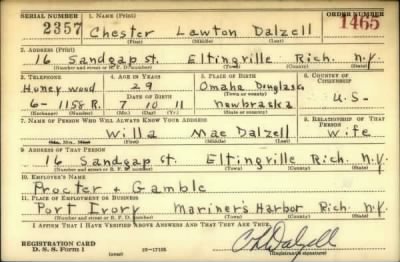 SERIAL NUMBER 1. NAME (Print) ORDER NUMBER
2357 Chester Lawton Dalzell 1465
(First) (Middle) (Last)
2. ADDRESS (Print)
16 Sandgap St. Eltingville Rich. N.Y.
(Number and street or R. F. D. number) (Town) (County) (State)
3. TELEPHONE 4. AGE IN YEARS 5. PLACE OF BIRTH 6. COUNTRY OF CITIZENSHIP
Honeywood 29 Omaha Douglass
DATE OF BIRTH (Town) (County)
6- 1158 R. 7 10 11 Newbraska U.S.
(Exchange) (Number) (Mo.) (Day) (Yr.) (State or country)
7. NAME OF PERSON WHO WILL ALWAYS KNOW YOUR ADDRESS 8. RELATIONSHIP OF THAT PERSON
Willa Mae Dalzell Wife
(Mr., Mrs., Miss) (First) (Middle) (Last)
9. ADDRESS OF THAT PERSON
16 Sandgap St. Eltingville Rich. N.Y.
(Number and street or R. F. D. number) (Town) (County) (State)
10. EMPLOYER'S NAME
Procter + Gamble
11. PLACE OF EMPLOYMENT OR BUSINESS
Port Ivory Mariner's Harbor Rich. N.Y.
(Number and street or R. F. D. number) (Town) (County) (State)
I AFFIRM THAT I HAVE VERIFIED ABOVE ANSWERS AND THAT THEY ARE TRUE.
REGISTRATION CARD
D. S. S. Form 1 (over) 16—17105 C L Dalzell
(Registrant's signature)